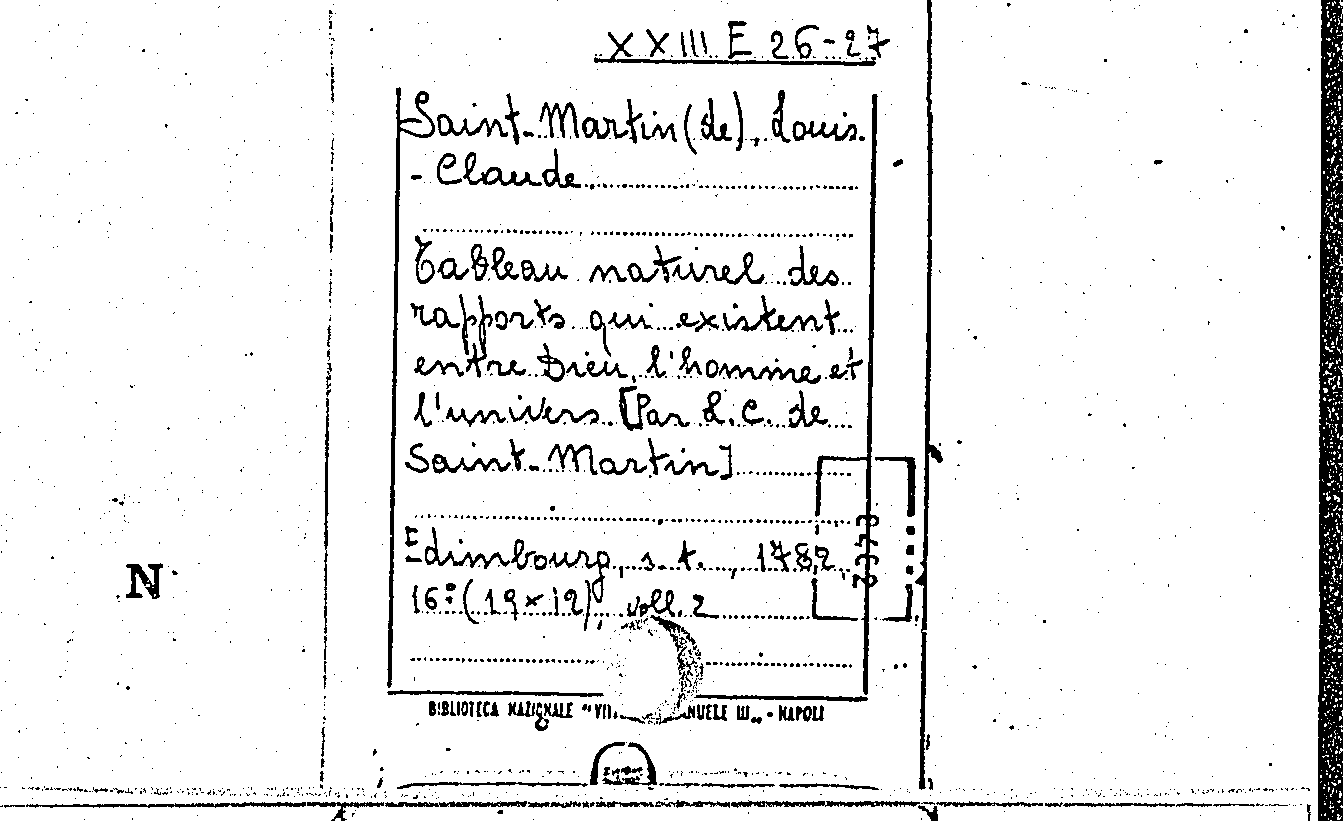 XXIII E 26-27
Saint-Martin (de), Louis-
- Claude
Tableau naturel des
rapports qui existent
entre Dieu, l'homme et
l'univers. [Par L.C. de
Saint-Martin]
Edimbourg, s.t., 1782,
16º (19x12), voll. 2
N
BIBLIOTECA NAZIONALE "VIT ANUELE III„ - NAPOLI